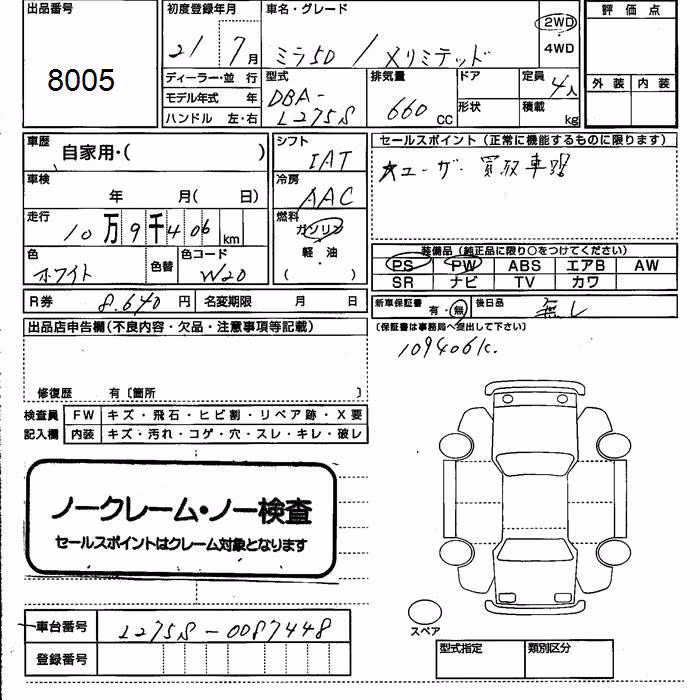 出品番号
8005
初度登録年月
21 7月
車名・グレード
ミラ5D / Xリミテッド
2WD
4WD
評価点
外装 内装
ディーラー・並 行
モデル年式 年
ハンドル 左・右
型式
DBA-
L275S
排気量
660 CC
ドア
形状
定員 4人
積載 kg
車歴
自家用・( )
シフト
IAT
セールスポイント (正常に機能するものに限ります)
★ユーザー買取車!!
車検
年 月( 日)
冷房
AAC
走行
10万9千406km
燃料
ガソリン
軽・油
( )
色
ホワイト
色替
色コード
W20
装備品 (純正品に限り○をつけてください)
PS PW ABS エアB AW
SR ナビ TV カワ
R券 8.640 円
名変期限 月 日
新車保証書 有・無
後日品 無し
出品店申告欄(不良内容・欠品・注意事項等記載)
(保証書は事務局へ提出して下さい)
109406k.
修復歴 有〔箇所 〕
検査員 FW キズ・飛石・ヒビ割・リペア跡・X要
記入欄 内装 キズ・汚れ・コゲ・穴・スレ・キレ・破レ
ノークレーム・ノー検査
セールスポイントはクレーム対象となります
スペア
車台番号 L275S-0087448
登録番号
型式指定 類別区分